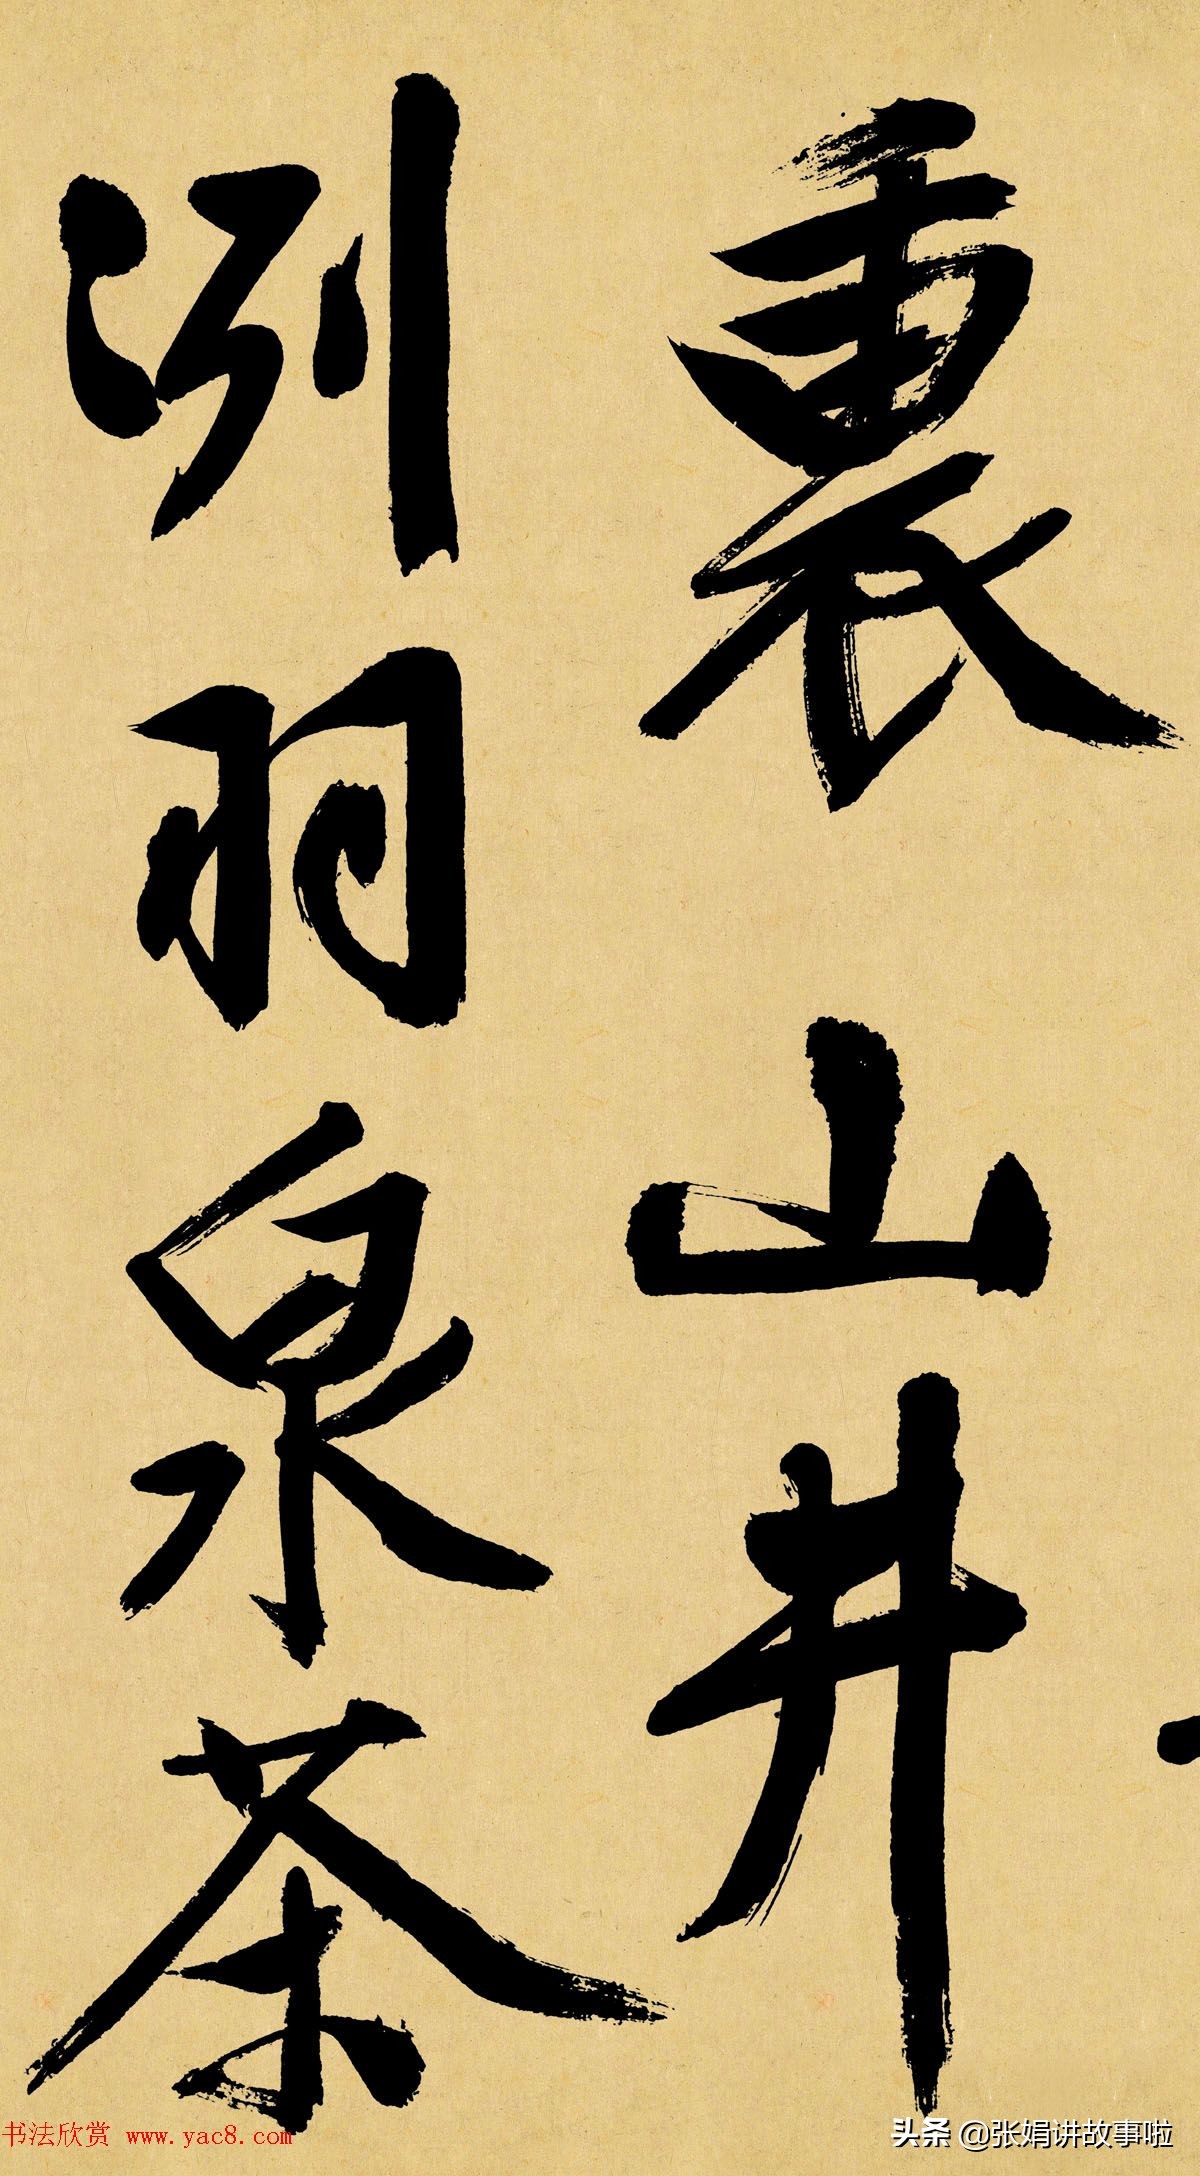 裏山井
冽羽泉茶
书法欣赏 www.yac8.com
头条 @张娟讲故事啦